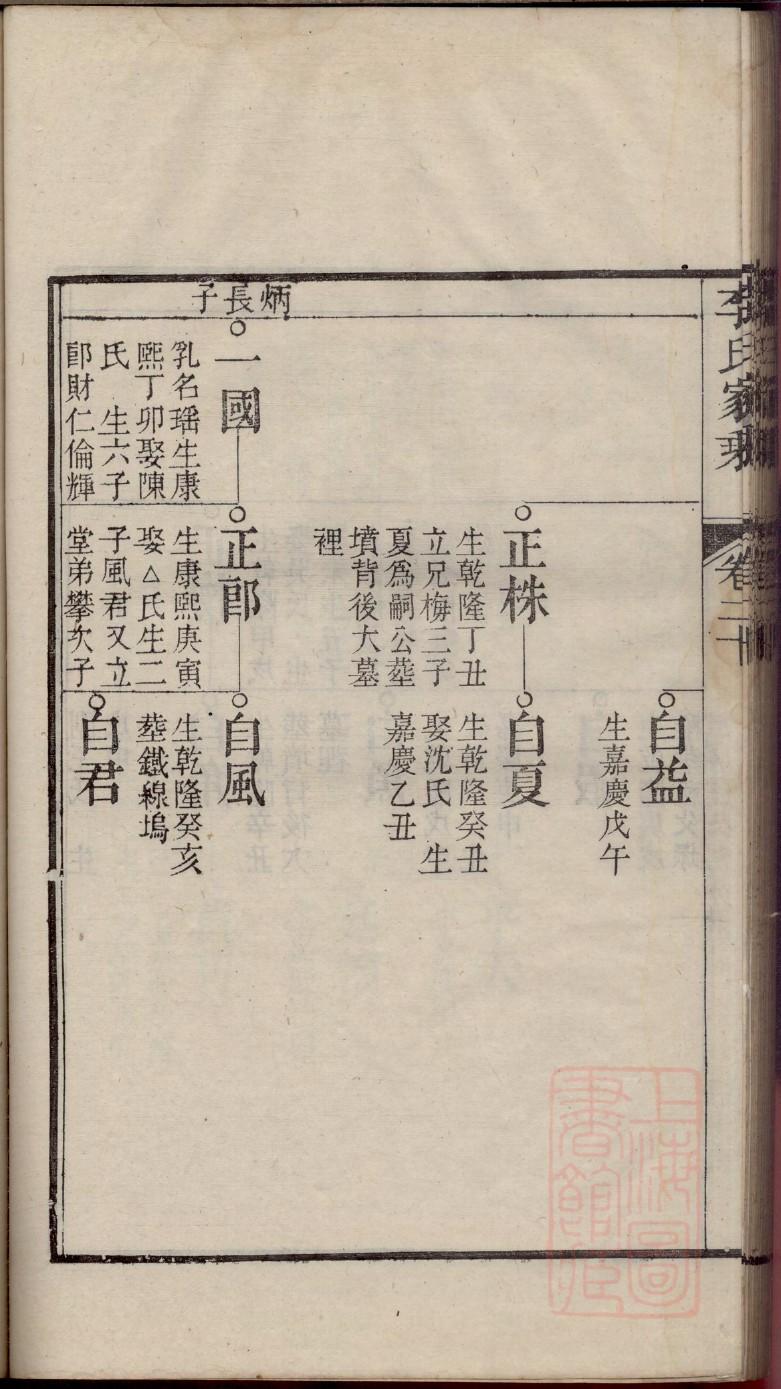 李氏家乘
卷二十
自益
生嘉慶戊午
正株
生乾隆丁丑
立兄梅三子
夏爲嗣公塟
墳背後大墓
裡
自夏
生乾隆癸丑
娶沈氏 生
嘉慶乙丑
炳長子
一國
乳名瑶生康
熙丁卯娶陳
氏 生六子
郎財仁倫輝
正郎
生康熙庚寅
娶△氏生二
子風君又立
堂弟攀次子
自風
生乾隆癸亥
塟鐵線塢
自君
上海圖
書館藏